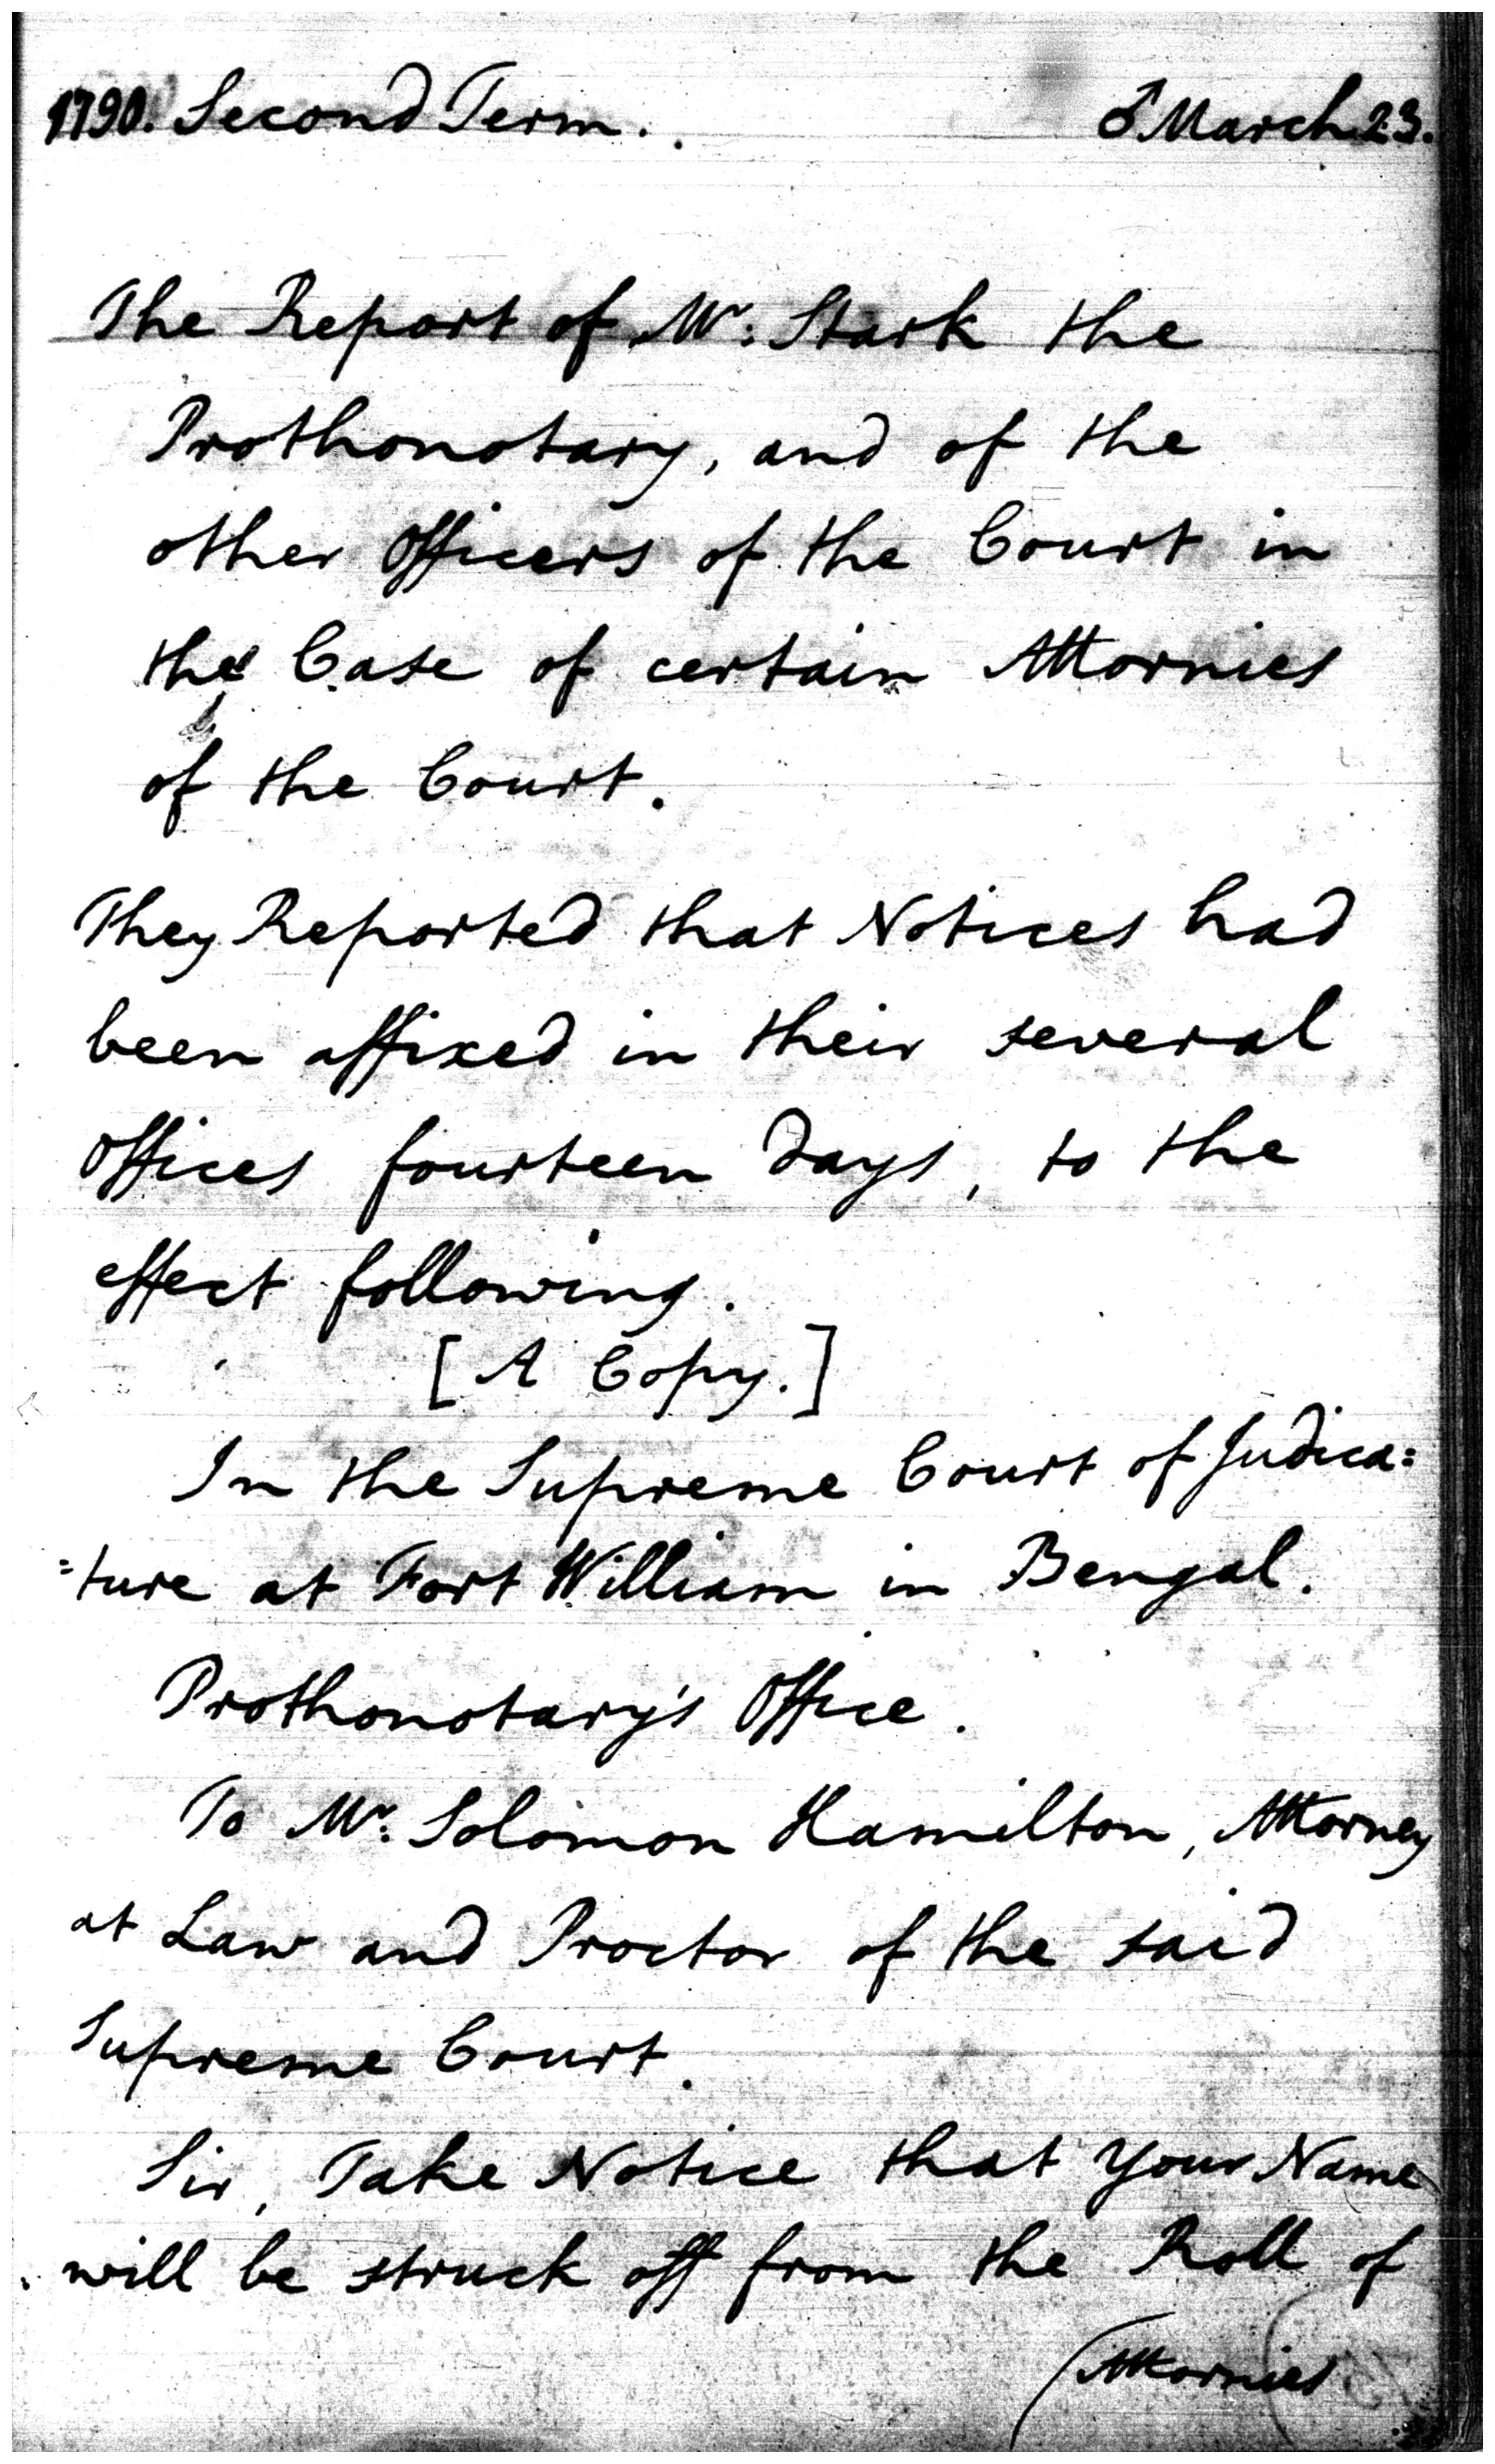 1790. Second Term. ♂ March. 23.
The Report of Mr: Stark the
Prothonotary, and of the
other Officers of the Court in
the Case of certain Attornies
of the Court.
They Reported that Notices had
been affixed in their several
Offices fourteen Days, to the
effect following.
[A Copy.]
In the Supreme Court of Judica=
=ture at Fort William in Bengal.
Prothonotary's Office.
To Mr: Solomon Hamilton, Attorney
at Law and Proctor of the said
Supreme Court.
Sir, Take Notice that your Name
will be struck off from the Roll of
(Attornies